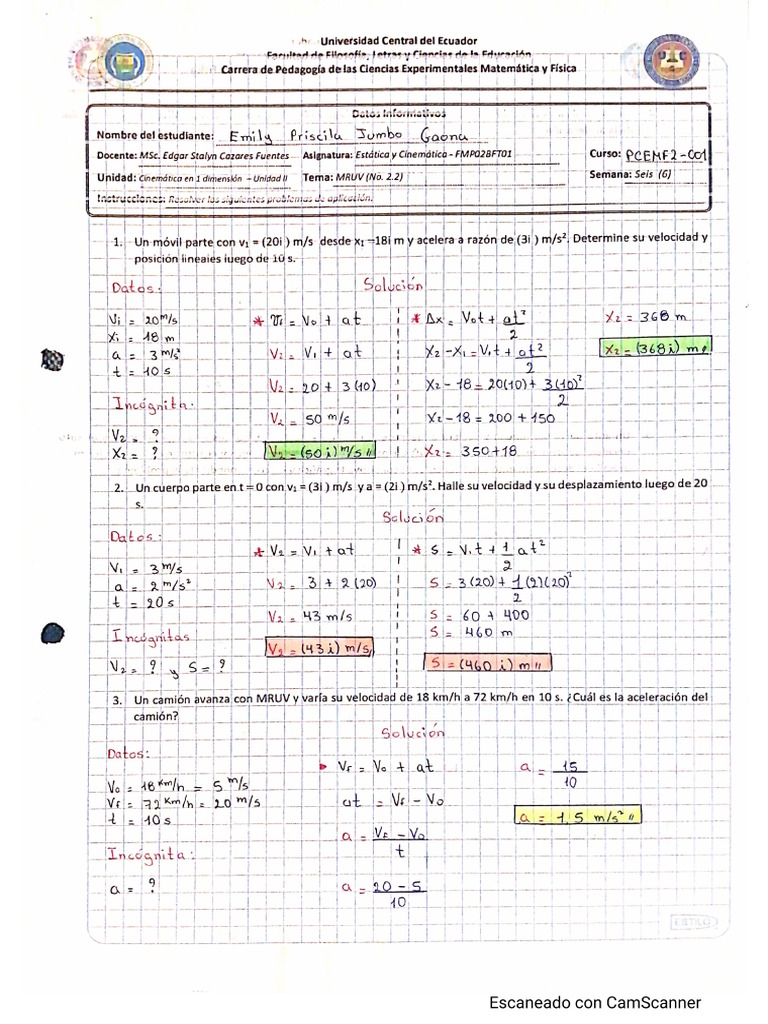 Universidad Central del Ecuador
Facultad de Filosofía, Letras y Ciencias de la Educación
Carrera de Pedagogía de las Ciencias Experimentales Matemática y Física
Datos Informativos
Nombre del estudiante: Emily Priscila Jumbo Gaona
Docente: MSc. Edgar Stalyn Cazares Fuentes Asignatura: Estática y Cinemática - FMP02BFT01 Curso: PCEMF2-001
Unidad: Cinemática en 1 dimensión – Unidad II Tema: MRUV (No. 2.2) Semana: Seis (6)
Instrucciones: Resolver los siguientes problemas de aplicación.
1. Un móvil parte con v₁ = (20i ) m/s desde x₁ =18i m y acelera a razón de (3i ) m/s². Determine su velocidad y
posición lineales luego de 10 s.
Datos:
Vi = 20 m/s
Xi = 18 m
a = 3 m/s²
t = 10 s
Incógnita:
V₂ = ?
X₂ = ?
Solución
* Vi = V₀ + at
V₂ = V₁ + at
V₂ = 20 + 3(10)
V₂ = 50 m/s
V₂ = (50 i) m/s //
* Δx = V₀t + at²/2
X₂ - X₁ = V₁t + at²/2
X₂ - 18 = 20(10) + 3(10)²/2
X₂ - 18 = 200 + 150
X₂ = 350 + 18
X₂ = 368 m
X₂ = (368 i) m //
2. Un cuerpo parte en t = 0 con v₁ = (3i ) m/s y a = (2i ) m/s². Halle su velocidad y su desplazamiento luego de 20
s.
Datos:
V₁ = 3 m/s
a = 2 m/s²
t = 20 s
Incógnitas
V₂ = ? y S = ?
Solución
* V₂ = V₁ + at
V₂ = 3 + 2 (20)
V₂ = 43 m/s
V₂ = (43 i) m/s //
* S = V₁t + 1/2 at²
S = 3(20) + 1/2 (2)(20)²
S = 60 + 400
S = 460 m
S = (460 i) m //
3. Un camión avanza con MRUV y varía su velocidad de 18 km/h a 72 km/h en 10 s. ¿Cuál es la aceleración del
camión?
Datos:
V₀ = 18 Km/h = 5 m/s
Vf = 72 Km/h = 20 m/s
t = 10 s
Incógnita:
a = ?
Solución
Vf = V₀ + at
at = Vf - V₀
a = Vf - V₀/t
a = 20 - 5/10
a = 15/10
a = 1,5 m/s² //
ESTILO
Escaneado con CamScanner